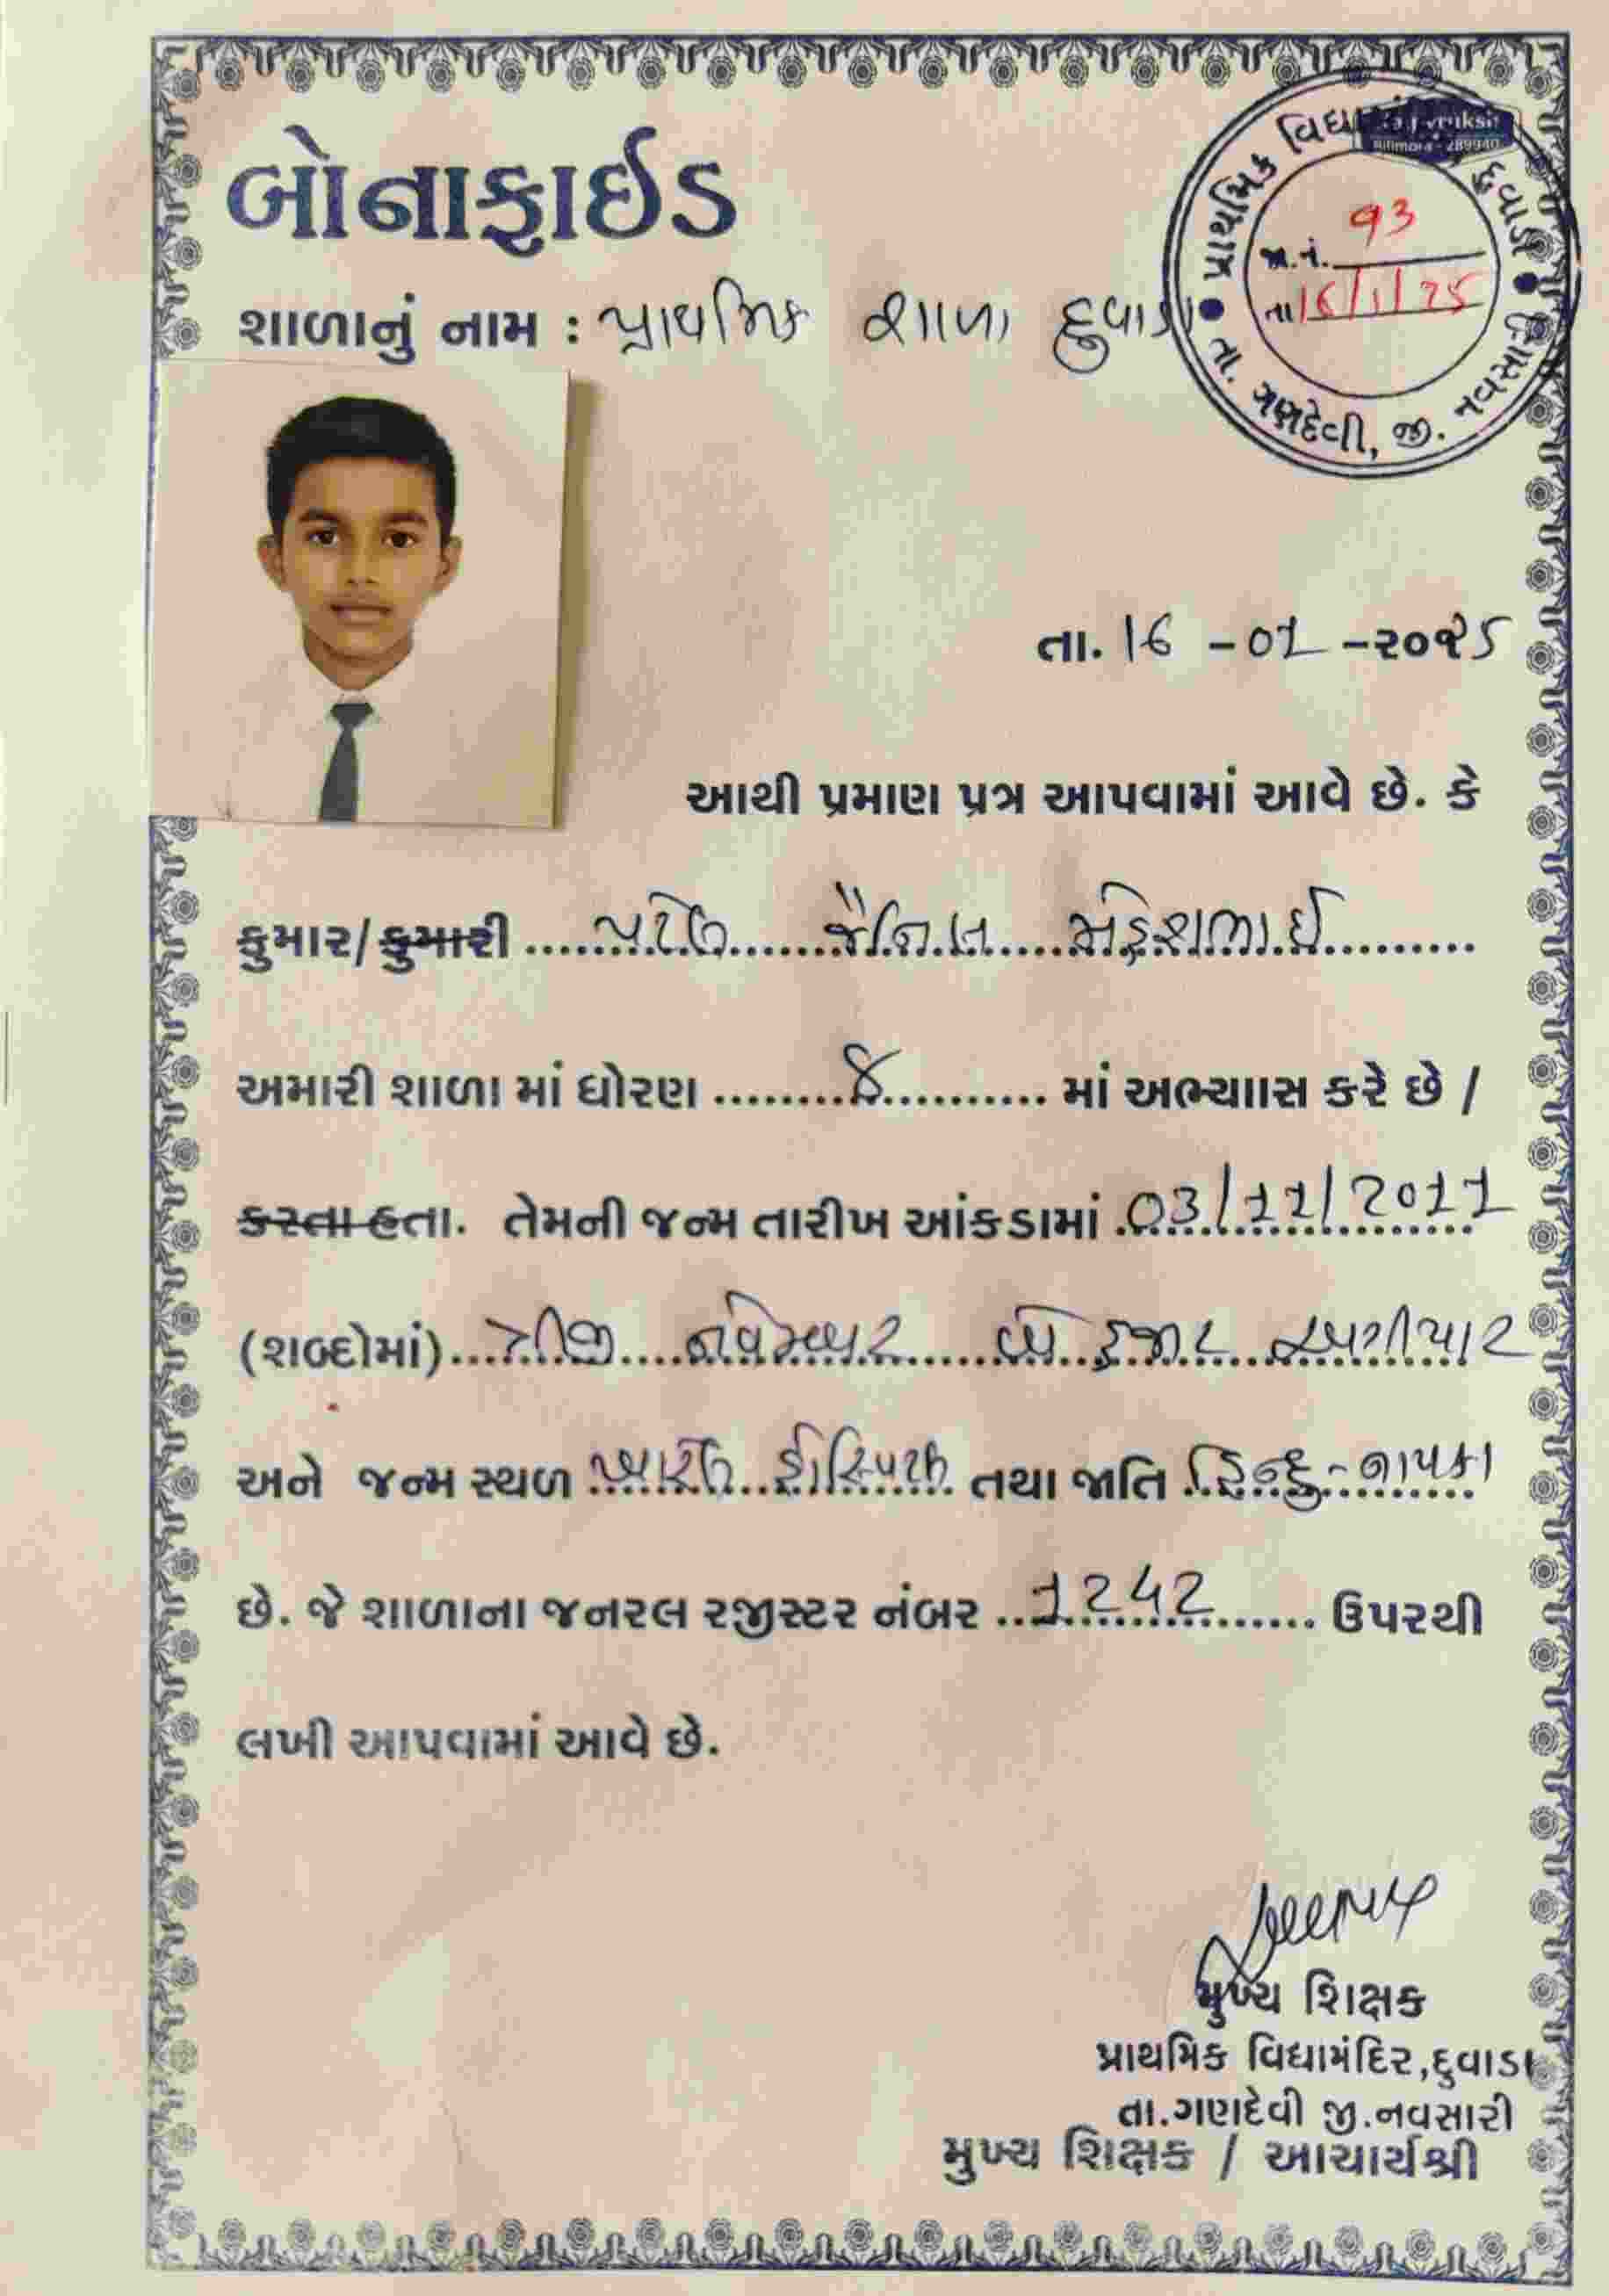 બોનાફાઈડ
શાળાનું નામ : પ્રાથમિક શાળા દુવાડા
પ્રાથમિક વિદ્યામંદિર, દુવાડા
જા.નં. ૧૩
તા. 16/1/25
તા. ગણદેવી, જી. નવસારી
તા. 16 - 01 - ૨૦૨5
આથી પ્રમાણ પત્ર આપવામાં આવે છે. કે
કુમાર/કુમારી પટેલ જૈનિલ મહેશભાઈ
અમારી શાળા માં ધોરણ 8 માં અભ્યાાસ કરે છે /
કરતા હતા. તેમની જન્મ તારીખ આંકડામાં 03/11/2011
(શબ્દોમાં) ત્રીજી નવેમ્બર બે હજાર અગીયાર
અને જન્મ સ્થળ હોસ્પિટલ તથા જાતિ હિન્દુ-નાયકા
છે. જે શાળાના જનરલ રજીસ્ટર નંબર 1242 ઉપરથી
લખી આપવામાં આવે છે.
મુખ્ય શિક્ષક
પ્રાથમિક વિદ્યામંદિર,દુવાડા
તા.ગણદેવી જી.નવસારી
મુખ્ય શિક્ષક / આચાર્યશ્રી